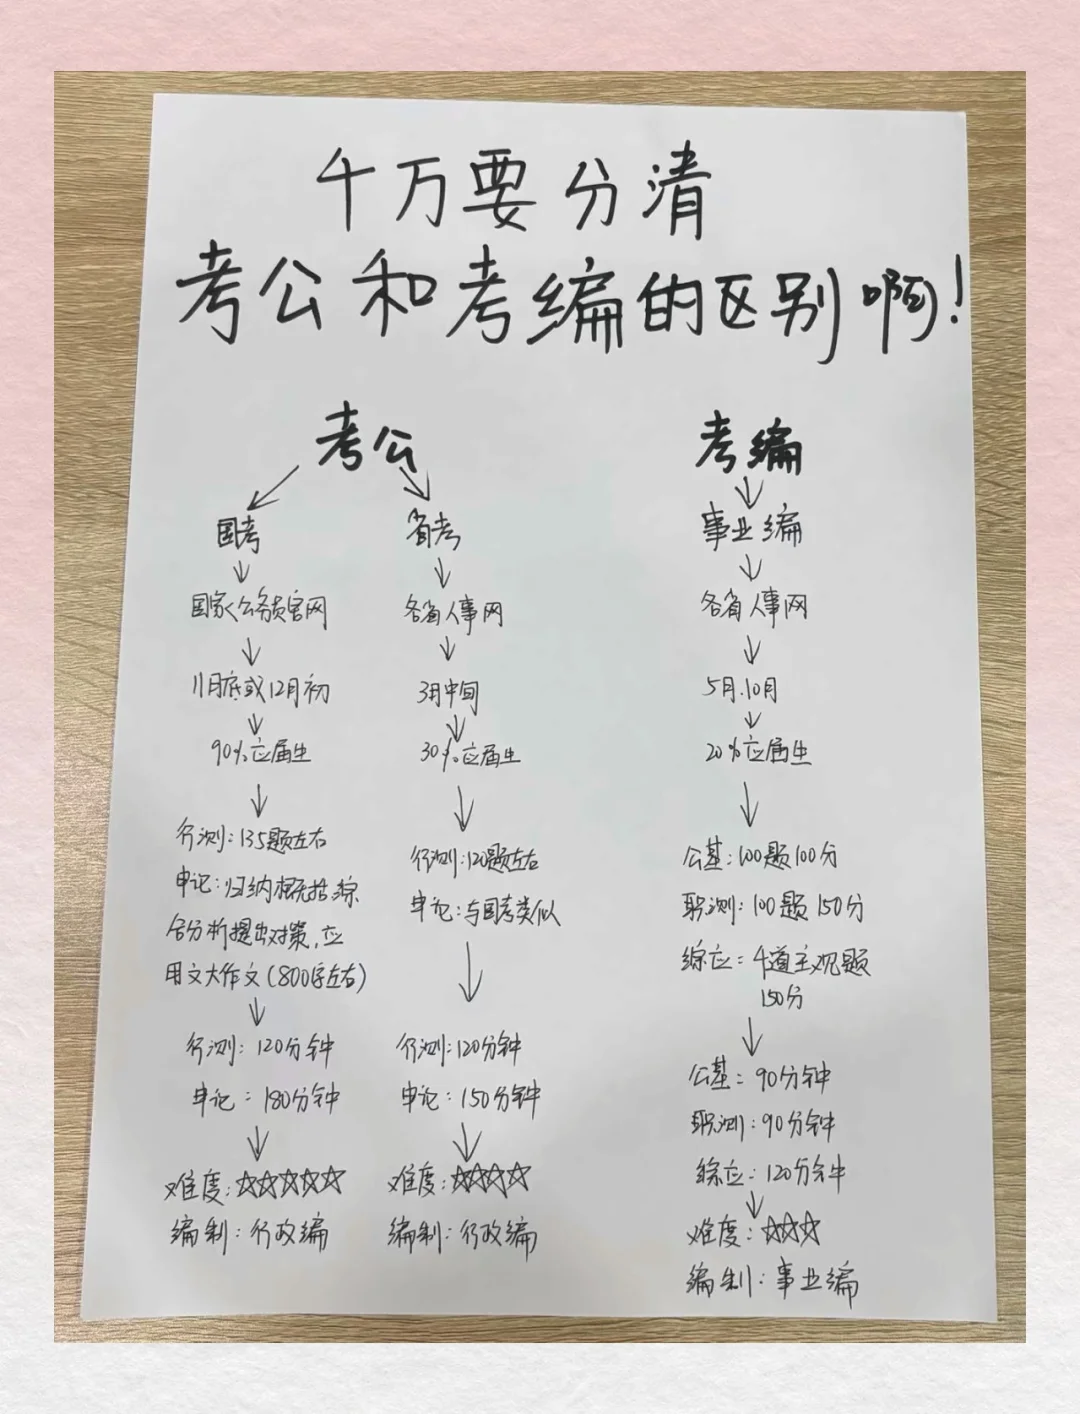 千万要分清
考公和考编的区别啊!
考公
国考
国家公务员官网
11月底或12月初
90%应届生
行测:135题左右
申论:归纳概括综
合分析提出对策,应
用文大作文(800字左右)
行测:120分钟
申论:180分钟
难度:☆☆☆☆☆
编制:行政编
省考
各省人事网
3月中间
30%应届生
行测:120题左右
申论:与国考类似
行测:120分钟
申论:150分钟
难度:☆☆☆☆
编制:行政编
考编
事业编
各省人事网
5月.10月
20%应届生
公基:100题100分
职测:100题150分
综应:4道主观题
150分
公基:90分钟
职测:90分钟
综应:120分钟
难度:☆☆☆
编制:事业编